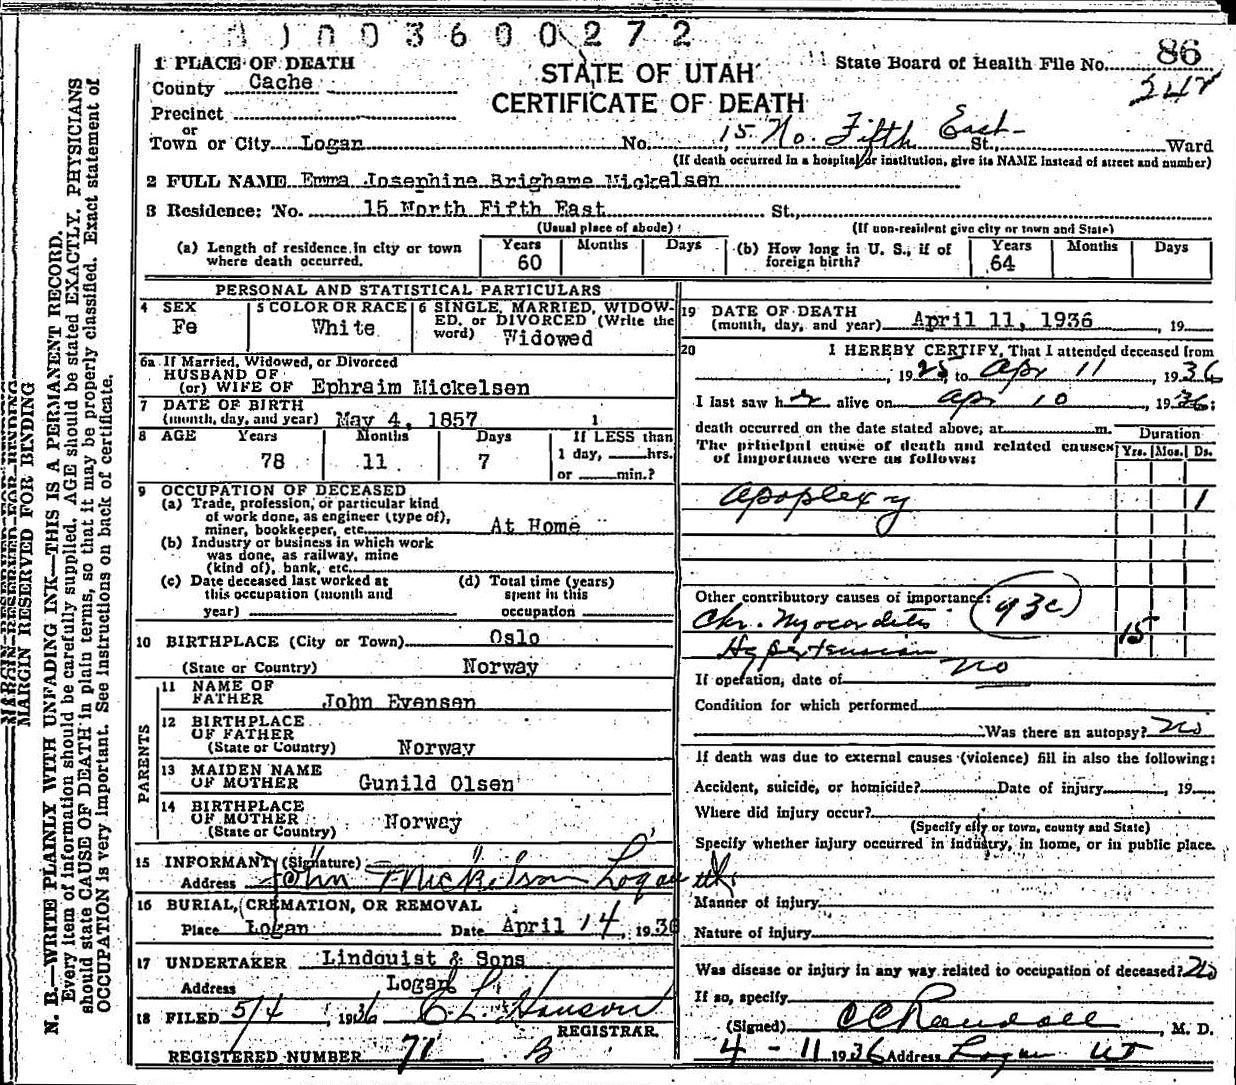 003600272
1 PLACE OF DEATH
STATE OF UTAH
State Board of Health File No. 86
County Cache
CERTIFICATE OF DEATH
Precinct
or
Town or City Logan No. 15 No. Fifth East St., Ward
(If death occurred in a hospital or institution, give its NAME instead of street and number)
2 FULL NAME Emma Josephine Brighame Mickelsen
3 Residence: No. 15 North Fifth East St.,
(Usual place of abode) (If non-resident give city or town and State)
(a) Length of residence in city or town where death occurred. Years 60 Months Days (b) How long in U. S., if of foreign birth? Years 64 Months Days
PERSONAL AND STATISTICAL PARTICULARS
4 SEX Fe
5 COLOR OR RACE White
6 SINGLE, MARRIED, WIDOWED, or DIVORCED (Write the word) Widowed
6a If Married, Widowed, or Divorced
HUSBAND OF
(or) WIFE OF Ephraim Mickelsen
7 DATE OF BIRTH
(month, day, and year) May 4, 1857 1
8 AGE Years Months Days If LESS than
78 11 7 1 day, hrs.
or min.?
9 OCCUPATION OF DECEASED
(a) Trade, profession, or particular kind
of work done, as engineer (type of),
miner, bookkeeper, etc. At Home
(b) Industry or business in which work
was done, as railway, mine
(kind of), bank, etc.
(c) Date deceased last worked at
this occupation (month and
year)
(d) Total time (years)
spent in this
occupation
10 BIRTHPLACE (City or Town) Oslo
(State or Country) Norway
PARENTS
11 NAME OF
FATHER John Evensen
12 BIRTHPLACE
OF FATHER
(State or Country) Norway
13 MAIDEN NAME
OF MOTHER Gunild Olsen
14 BIRTHPLACE
OF MOTHER
(State or Country) Norway
15 INFORMANT (Signature)
Address John Mickelson Logan Ut.
16 BURIAL, CREMATION, OR REMOVAL
Place Logan Date April 14, 1936
17 UNDERTAKER Lindquist & Sons
Address Logan
18 FILED 5/4, 1936 C L Hanson
REGISTRAR.
REGISTERED NUMBER 71 B
19 DATE OF DEATH
(month, day, and year) April 11, 1936, 19
20 I HEREBY CERTIFY, That I attended deceased from
, 1925, to Apr 11, 1936
I last saw her alive on Apr 10, 1936;
death occurred on the date stated above, at m.
The principal cause of death and related causes
of importance were as follows:
Duration
Yrs. Mos. Ds.
Apoplexy 1
Other contributory causes of importance: 93c
Chr. Myocarditis 15
Hypertension
If operation, date of no
Condition for which performed
Was there an autopsy? No
If death was due to external causes (violence) fill in also the following:
Accident, suicide, or homicide? Date of injury, 19
Where did injury occur?
(Specify city or town, county and State)
Specify whether injury occurred in industry, in home, or in public place.
Manner of injury
Nature of injury
Was disease or injury in any way related to occupation of deceased? No
If so, specify
(Signed) C C Randall, M. D.
4 - 11 1936 Address Logan UT
MARGIN RESERVED FOR BINDING
N. B.—WRITE PLAINLY WITH UNFADING INK—THIS IS A PERMANENT RECORD.
Every item of information should be carefully supplied. AGE should be stated EXACTLY. PHYSICIANS
should state CAUSE OF DEATH in plain terms, so that it may be properly classified. Exact statement of
OCCUPATION is very important. See instructions on back of certificate.